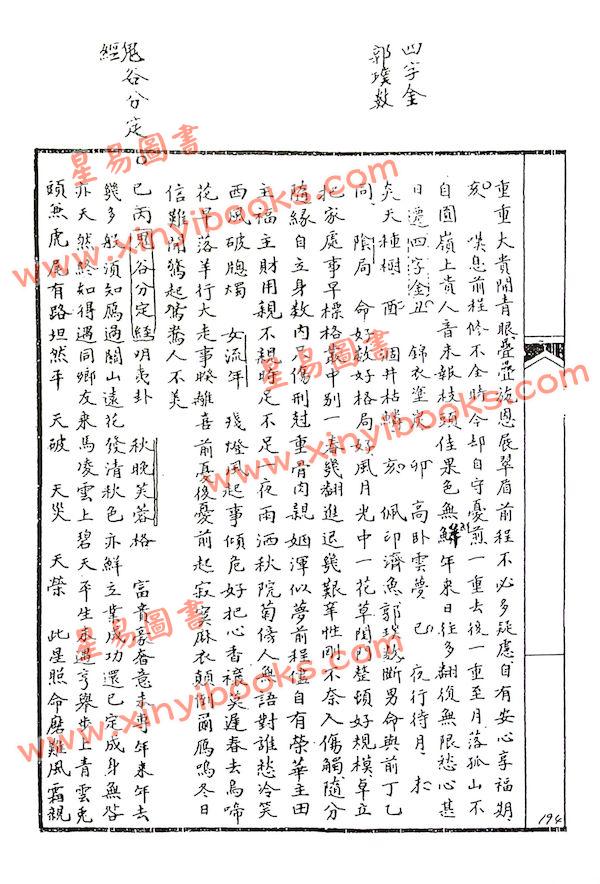 四字金
郭璞数
鬼谷分定
經
重重大貴開青眼疊疊施恩展翠眉前程不必多疑慮自有安心享福期
亥 嘆息前程修不全時今却自守憂煎一重去後一重至月落孤山不
自園嶺上貴人音來報枝頭佳果色無鮮年來日往多翻復無限愁心甚
日遷四字金丑 錦衣塗炭 卯 高卧雲夢 巳 夜行待月
炎天種樹 酉 涸井枯鱗 亥 佩印濟魚郭璞数断男命與前丁乙
同 陰局 命好数好格局好風月光中一花草閨門整頓好規模草立
把家處事早標格 中别一春幾翻迍迍幾艱辛性剛不奈入傷觸隨分
隨緣自立身数内 傷刑尅重骨肉親姻渾似夢前程儘自有榮華主田
主福主財用親不親時足不足一夜雨洒秋院菊傍人無語對誰愁冷笑
西風破牕燭 女流年 殘燈風起事傾危好把心香 遲春去鳥啼
花早落羊行大走事睽離喜前更後憂前起寂寞麻衣顛倒 雁嗚冬日
信難聞驚起鴛鴦人不美
己丙鬼谷分定經明夷卦 秋晚芙蓉格 富貴豪奢意未專年來年去
幾多般須知雁過關山遠花發清秋色亦鮮立業成功還已定成身無咎
亦天然終知得遇同鄉友乘馬凌雲上碧天平生未遇亨舉步上青雲兎
頭無虎尾有路坦然平 天破 天災 天榮 此星照命磨難風霜親
194
星易圖書
www.xinyibooks.com
星易圖書
www.xinyibooks.com
星易圖書
www.xinyibooks.com
星易圖書
www.xinyibooks.com